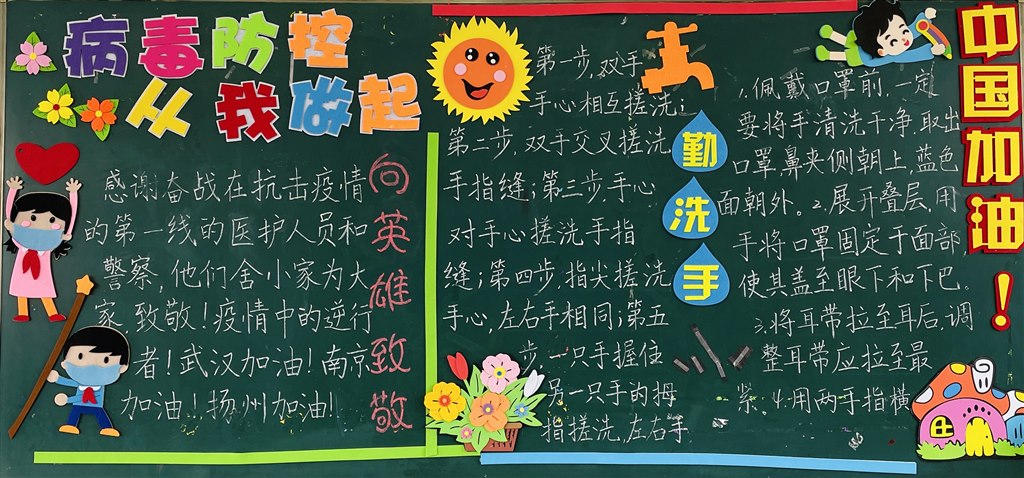 病毒防控
从我做起
感谢奋战在抗击疫情
的第一线的医护人员和
警察，他们舍小家为大
家，致敬！疫情中的逆行
者！武汉加油！南京
加油！扬州加油！
向英雄致敬
第一步，双手
手心相互搓洗；
第二步，双手交叉搓洗
手指缝；第三步，手心
对手心搓洗手指
缝；第四步，指尖搓洗
手心，左右手相同；第五
步，一只手握住
另一只手的拇
指搓洗，左右手
勤洗手
1.佩戴口罩前，一定
要将手清洗干净，取出
口罩，鼻夹侧朝上，蓝色
面朝外。2.展开叠层，用
手将口罩固定于面部
使其盖至眼下和下巴。
3.将耳带拉至耳后，调
整耳带应拉至最
紧。4.用两手指横
中国加油！